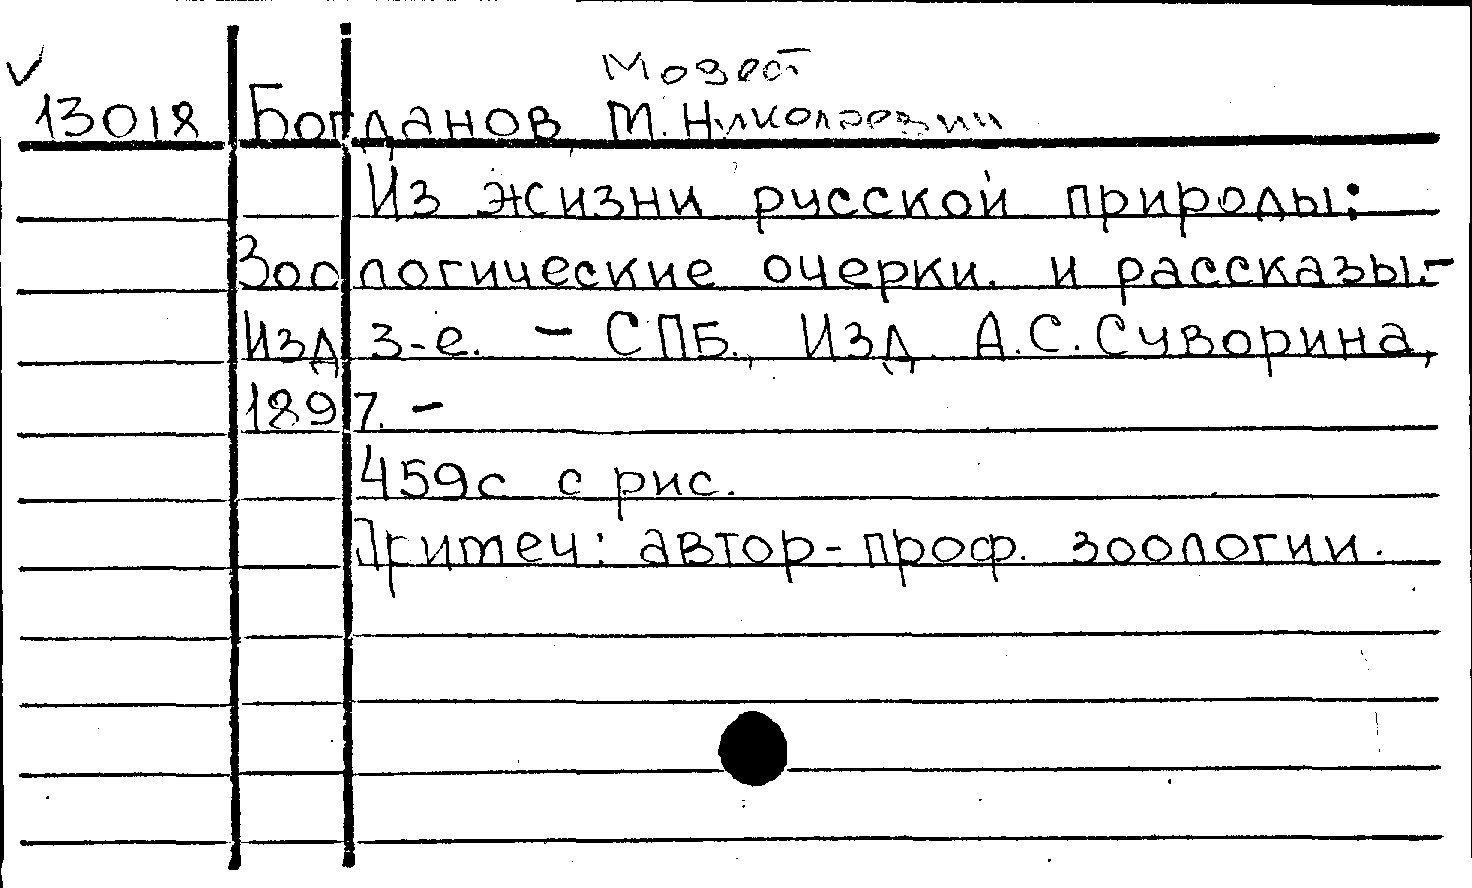 Модест
13018 Богданов М. Николаевич
Из жизни русской природы:
Зоологические очерки. и рассказы.-
Изд 3-е. - СПБ., Изд. А.С.Суворина,
1897. -
459с с рис.
Притеч: автор-проф. зоологии.